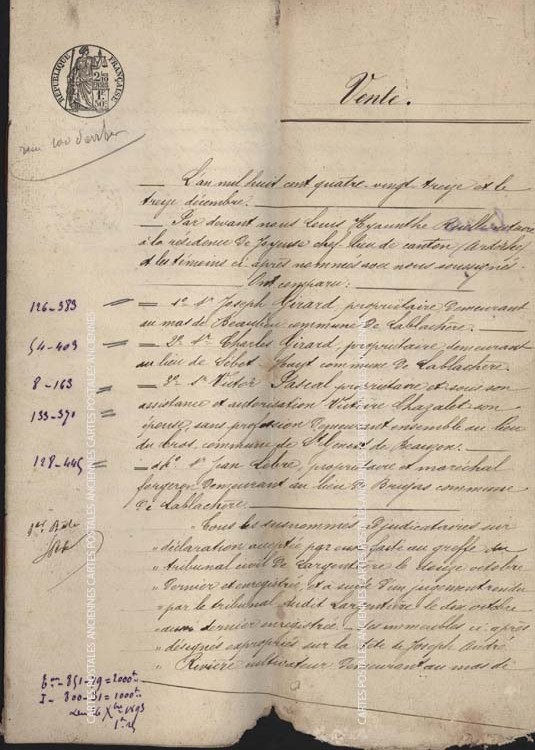 RÉPUBLIQUE FRANÇAISE
Vente.
L'an mil huit cent quatre-vingt-treize et le
treize décembre.
Par devant nous Louis Hyacinthe notaire
à la résidence de Joyeuse chef-lieu de canton (Ardèche)
et les témoins ci-après nommés avec nous soussignés.
Ont comparu:
126-383
1° Sr Joseph Girard, propriétaire demeurant
au mas de Beaulieu commune de Lablachère.
54-403
2° Sr Charles Girard, propriétaire demeurant
au lieu de commune de Lablachère.
8-163
3° Sr Victor Pascal propriétaire et sous son
assistance et autorisation Victoire Chazalet son
133-370
épouse, sans profession demeurant ensemble au lieu
du Cros, commune de St Genest de Beauzon.
128-445
4° Sr Jean Lèbre, propriétaire et maréchal
forgeron demeurant au lieu de commune
de Lablachère.
1er Rôle
Tous les susnommés adjudicataires sur
" déclaration acceptée par eux faite au greffe du
" tribunal civil de Largentière le douze octobre
" dernier enregistrée, et à suite d'un jugement rendu
" par le tribunal dudit Largentière le dix octobre
" aussi dernier enregistrée - des immeubles ci-après
" désignés expropriés sur la tête de Joseph André
" Rivière cultivateur demeurant au mas de
851-29=2000
I-800-31=1000
Xbre 1893
CARTES POSTALES ANCIENNES CARTES POSTALES ANCIENNES
CARTES POSTALES ANCIENNES CARTES POSTALES ANCIENNES